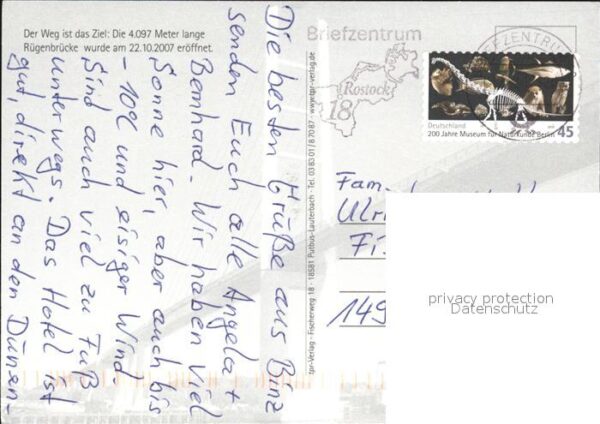 Der Weg ist das Ziel: Die 4.097 Meter lange
Rügenbrücke wurde am 22.10.2007 eröffnet.
Die besten Grüße aus Binz
senden Euch alle Angela +
Bernhard. Wir haben viel
Sonne hier, aber auch bis
- 10°C und eisiger Wind
Sind auch viel zu Fuß
unterwegs. Das Hotel ist
gut, direkt an den Dünen-
tpr-Verlag - Fischerweg 18 - 18581 Putbus-Lauterbach - Tel. 03 83 01 / 8 70 87 - www.tpr-verlag.de
Briefzentrum
Rostock
18
BRIEFZENTRUM
Deutschland
200 Jahre Museum für Naturkunde Berlin
45
Fam.
149
privacy protection
Datenschutz